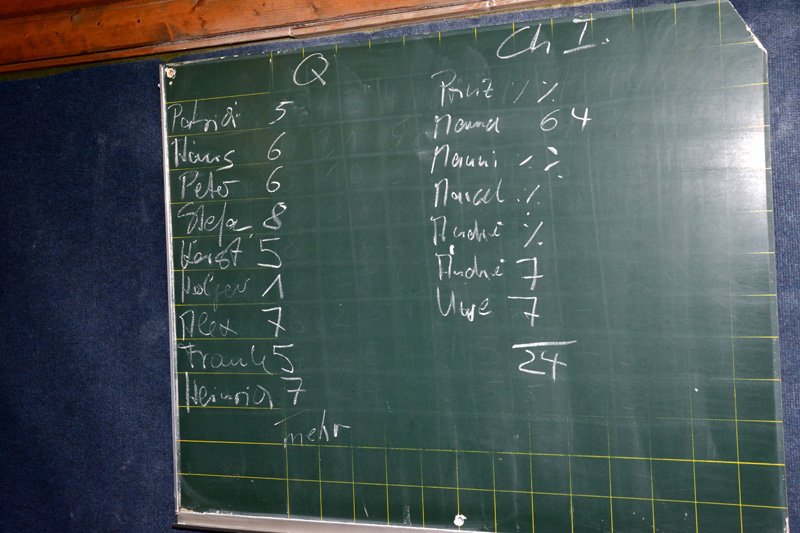 Q
Patrick 5
Hans 6
Peter 6
Stefan 8
Horst 5
Holger 1
Alex 7
Frank 5
Heinrich 7
mehr
Ch I.
Prinz % %
6 4
Manni % %
Marcel %
André %
André 7
Uwe 7
24